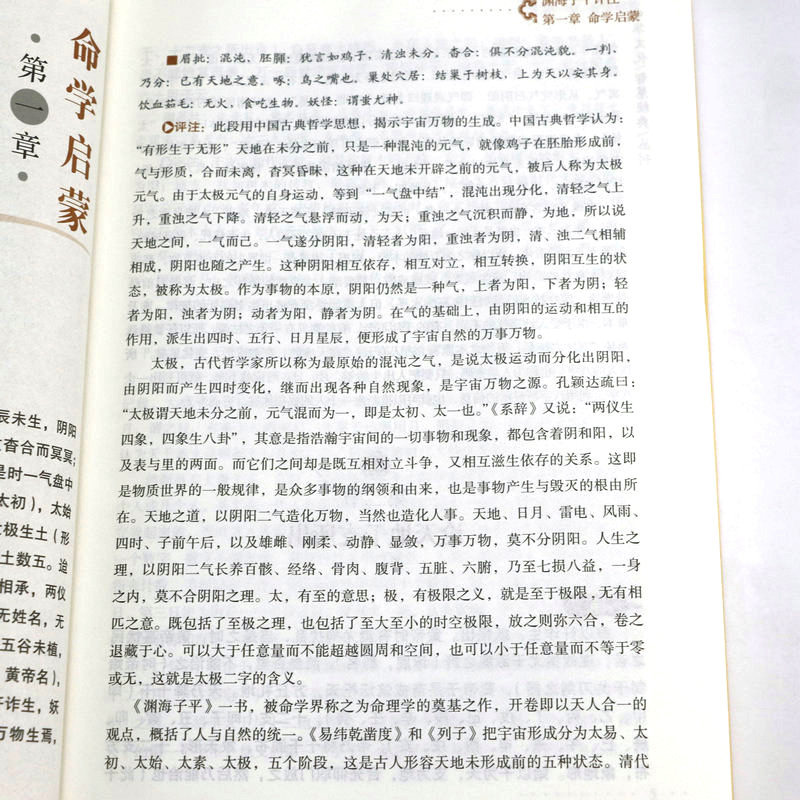 命学启蒙
·第一章·
辰未生，阴阳
杳合而冥冥；
是时一气盘中
太初），太始
太极生土（形
土数五。迨
相承，两仪
无姓名，无
五谷未植，
黄帝名），
奸诈生，妖
万物生焉，
渊海子平评注
第一章 命学启蒙
■眉批：混沌、胚腪：犹言如鸡子，清浊未分。杳合：俱不分混沌貌。一判、
乃分：已有天地之意。啄：鸟之嘴也。巢处穴居：结巢于树枝，上为天以安其身。
饮血茹毛：无火，食吃生物。妖怪：谓蚩尤神。
评注：此段用中国古典哲学思想，揭示宇宙万物的生成。中国古典哲学认为：
“有形生于无形”天地在未分之前，只是一种混沌的元气，就像鸡子在胚胎形成前，
气与形质，合而未离，杳冥昏昧，这种在天地未开辟之前的元气，被后人称为太极
元气。由于太极元气的自身运动，等到“一气盘中结”，混沌出现分化，清轻之气上
升，重浊之气下降。清轻之气悬浮而动，为天；重浊之气沉积而静，为地，所以说
天地之间，一气而已。一气遂分阴阳，清轻者为阳，重浊者为阴，清、浊二气相辅
相成，阴阳也随之产生。这种阴阳相互依存，相互对立，相互转换，阴阳互生的状
态，被称为太极。作为事物的本原，阴阳仍然是一种气，上者为阳，下者为阴；轻
者为阳，浊者为阴；动者为阳，静者为阴。在气的基础上，由阴阳的运动和相互的
作用，派生出四时、五行、日月星辰，便形成了宇宙自然的万事万物。
太极，古代哲学家所以称为最原始的混沌之气，是说太极运动而分化出阴阳，
由阴阳而产生四时变化，继而出现各种自然现象，是宇宙万物之源。孔颖达疏曰：
“太极谓天地未分之前，元气混而为一，即是太初、太一也。”《系辞》又说：“两仪生
四象，四象生八卦”，其意是指浩瀚宇宙间的一切事物和现象，都包含着阴和阳，以
及表与里的两面。而它们之间却是既互相对立斗争，又相互滋生依存的关系。这即
是物质世界的一般规律，是众多事物的纲领和由来，也是事物产生与毁灭的根由所
在。天地之道，以阴阳二气造化万物，当然也造化人事。天地、日月、雷电、风雨、
四时、子前午后，以及雄雌、刚柔、动静、显敛，万事万物，莫不分阴阳。人生之
理，以阴阳二气长养百骸、经络、骨肉、腹背、五脏、六腑，乃至七损八益，一身
之内，莫不合阴阳之理。太，有至的意思；极，有极限之义，就是至于极限，无有相
匹之意。既包括了至极之理，也包括了至大至小的时空极限，放之则弥六合，卷之
退藏于心。可以大于任意量而不能超越圆周和空间，也可以小于任意量而不等于零
或无，这就是太极二字的含义。
《渊海子平》一书，被命学界称之为命理学的奠基之作，开卷即以天人合一的
观点，概括了人与自然的统一。《易纬乾凿度》和《列子》把宇宙形成分为太易、太
初、太始、太素、太极，五个阶段，这是古人形容天地未形成前的五种状态。清代